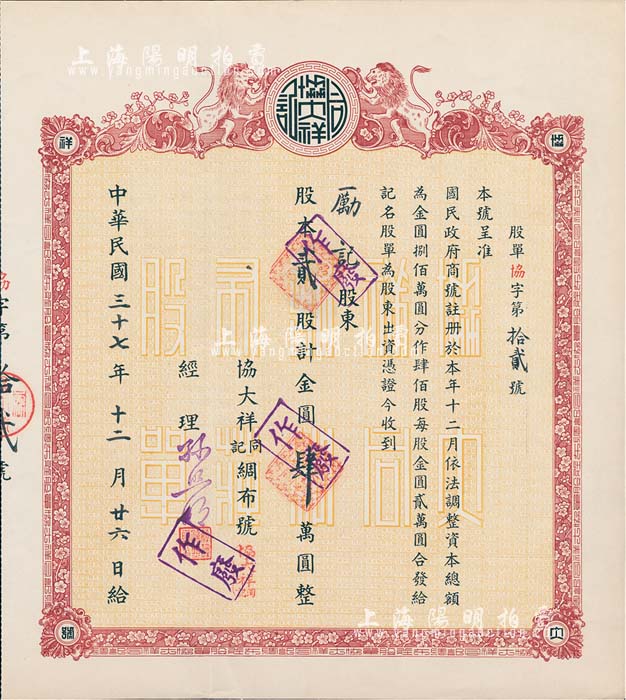 上海陽明拍賣
www.yangmingauction.com
同記
協大祥
祥
協
股單協字第拾貳號
本號呈准
國民政府商號註册於本年十二月依法調整資本總額
為金圓捌佰萬圓分作肆佰股每股金圓貳萬圓合發給
記名股單為股東出資憑證今收到
勵記股東
股本貳股計金圓肆萬圓整
協大祥同記綢布號
經理
中華民國三十七年十二月廿六日給
作廢
作廢
作廢
協字第拾貳號
上海陽明拍賣
上海陽明拍賣
綢
大